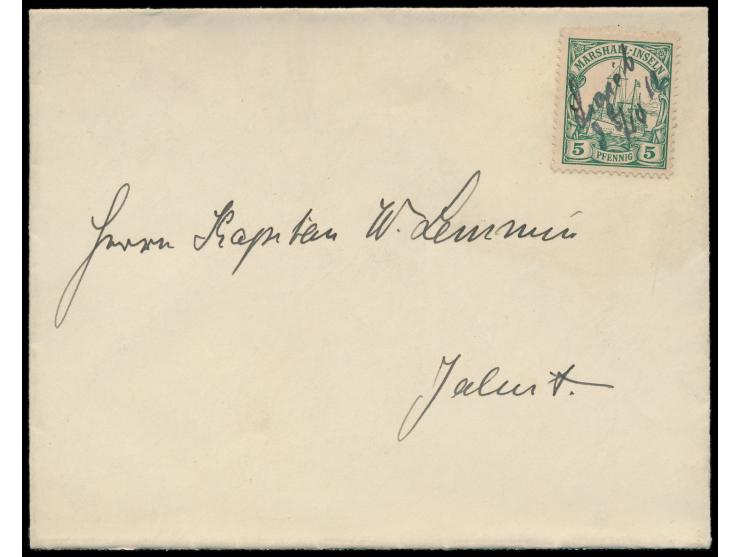 MARSHALL-INSELN
5 PFENNIG 5
Herrn Kapitän W. Lemmin
Jaluit.